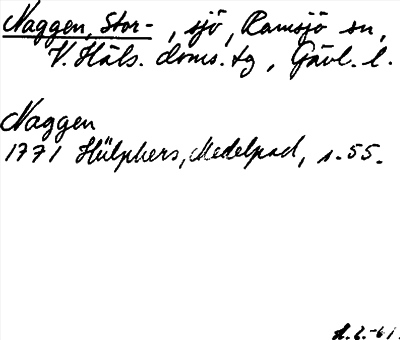 Naggen, Stor- , sjö, Ramsjö sn,
V. Häls. doms. tg, Gävl. l.
Naggen
1771 Hülphers, Medelpad, s. 55.